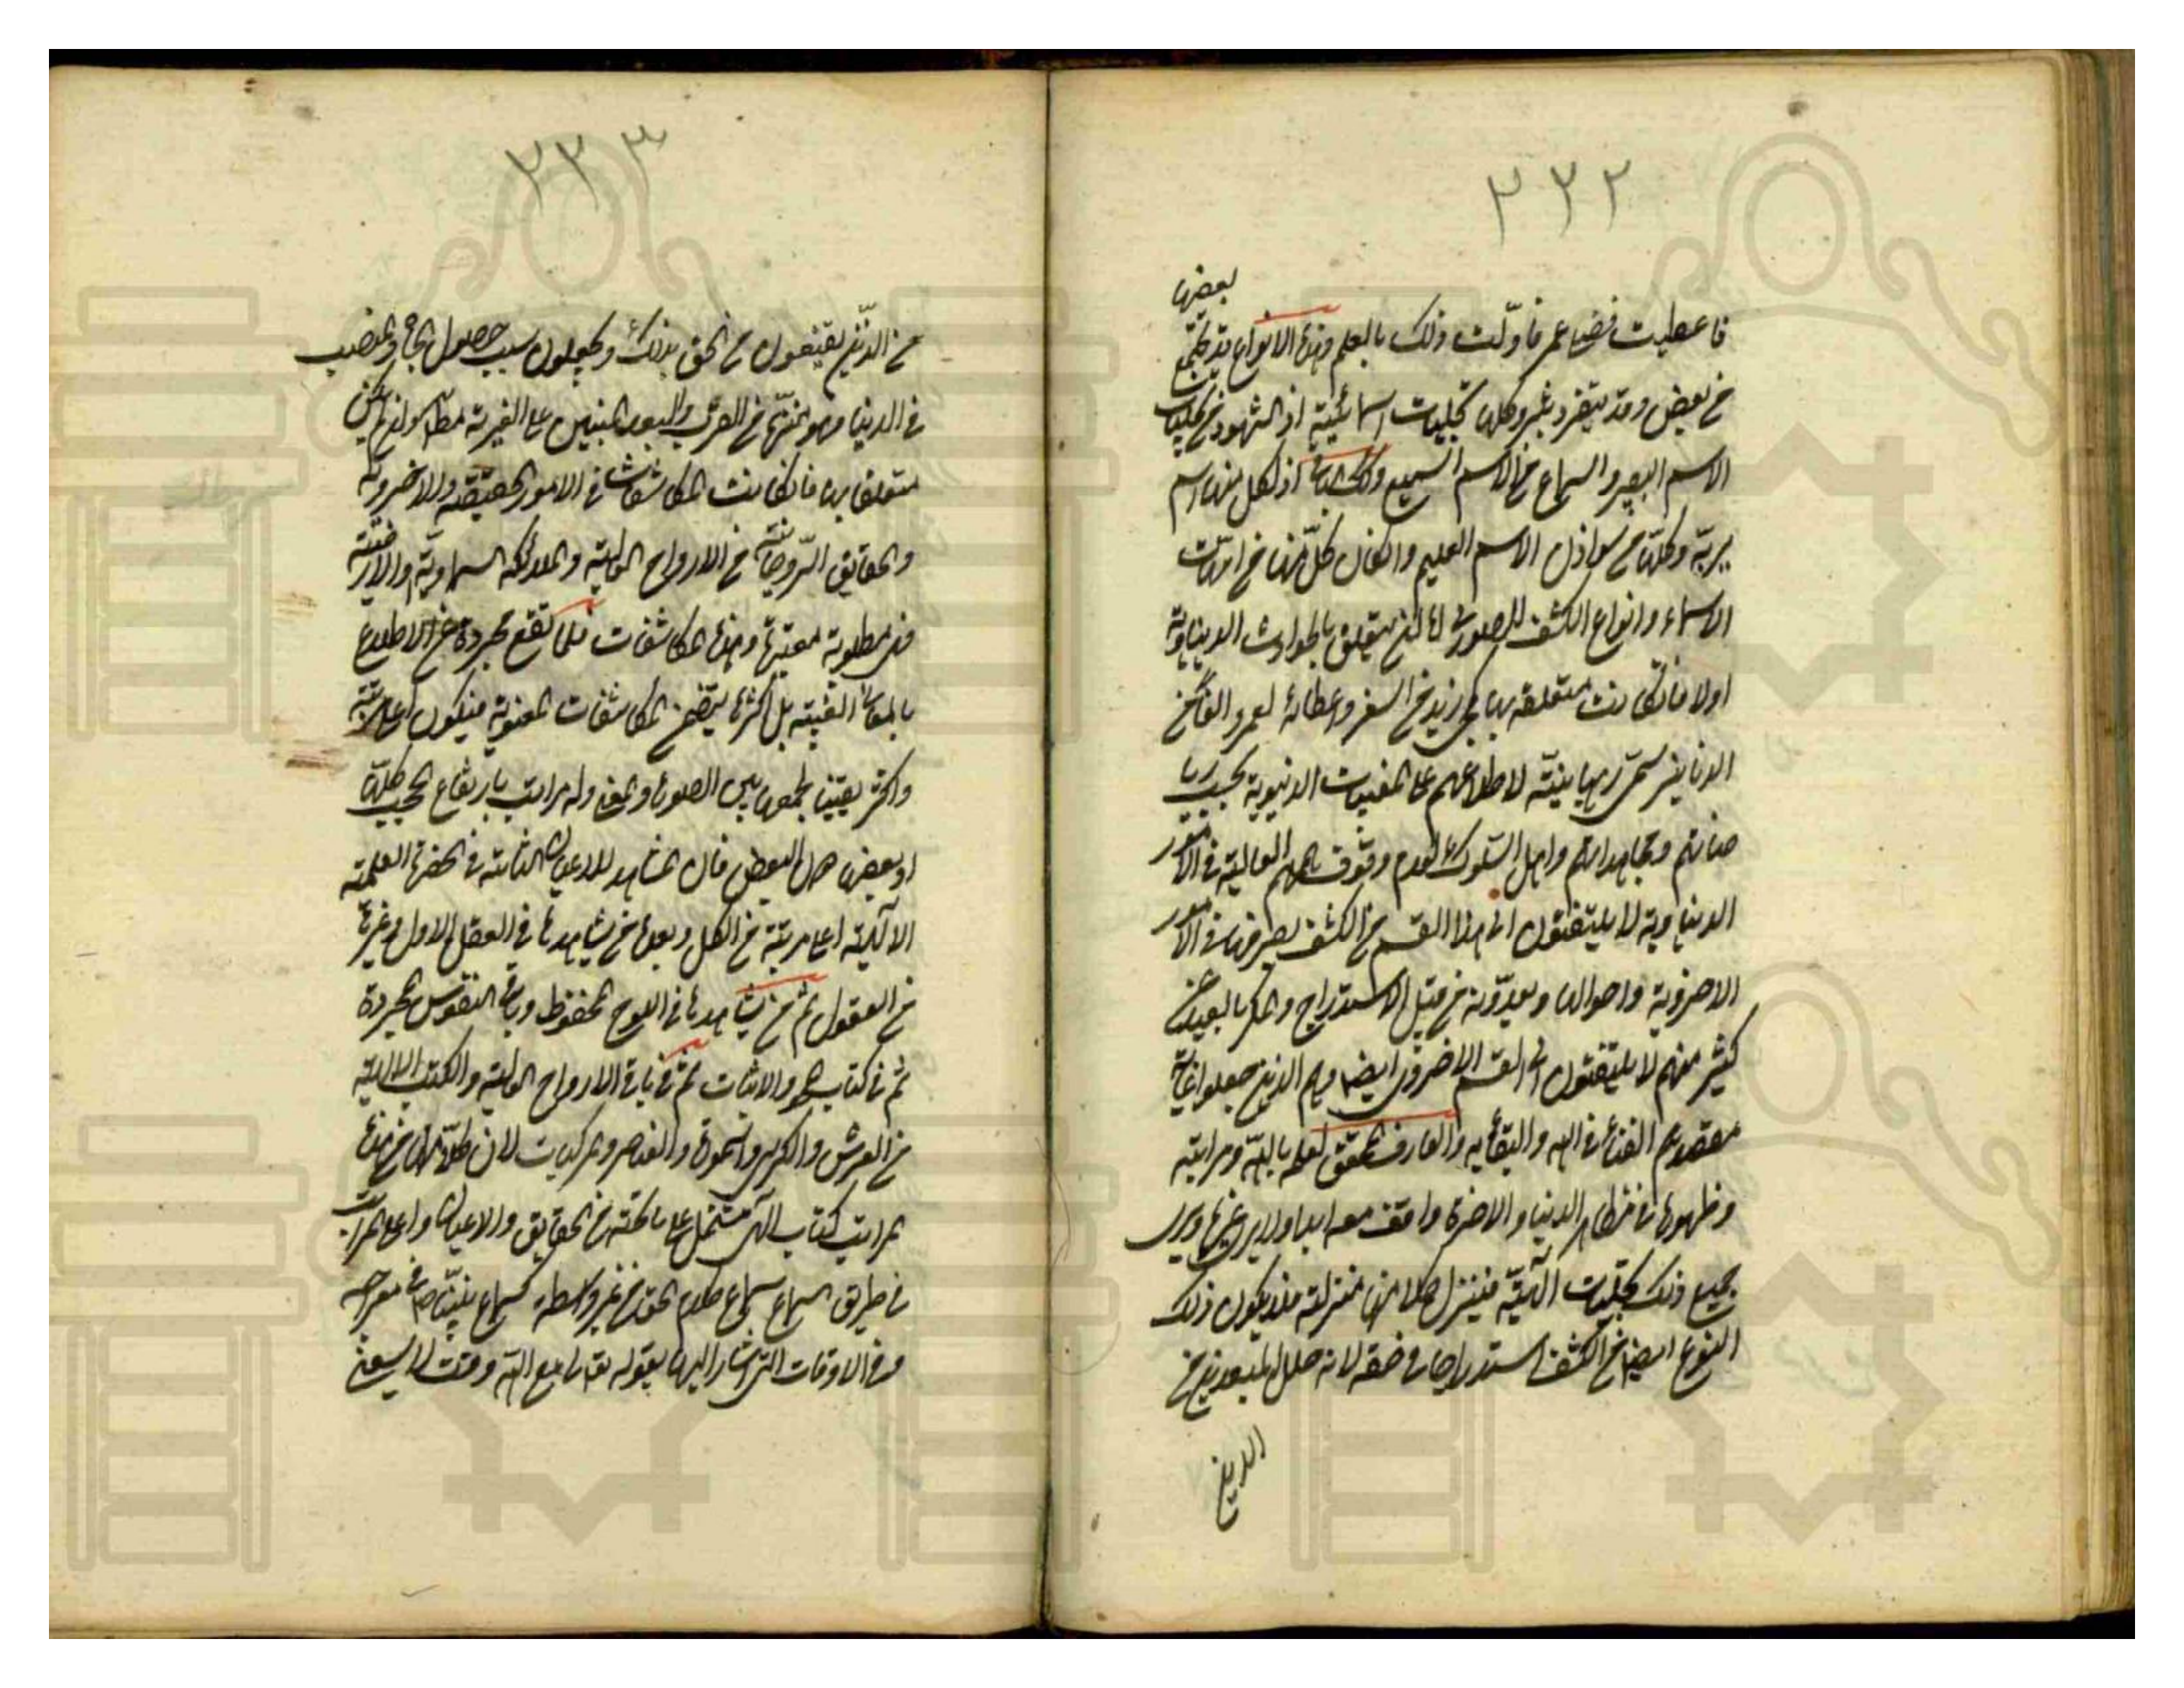 ٢٣٢
بعضها
فاعطيت فضلي عمر فاولت ذلك بالعلم وهذه الانواع قد تجتمع
مع بعض وقد ينفرد وكلها تجليات اسمائية اذ الشهود من تجليات
الاسم البصير والسماع من الاسم السميع وكذلك البواقي اذ لكل منها اسم
يربه وكلها من سوادن الاسم العليم وان كان كل منها من امهات
الاسماء وانواع الكشف الصوري اما ان يتعلق بالحوادث الدنياوية
اولا فان كانت متعلقة بها كمجيء زيد من السفر واعطائه لعمرو الفا من
الدنانير سمي رهبانية لاطلاعهم على المغيبات الدنيوية بحسب ريا
ضاتهم ومجاهداتهم واهل السلوك لعدم وقوف هممهم العالية في الامور
الدنياوية لا يلتفتون الى هذا القسم من الكشف لصرفها في الامور
الاخروية واحوالها ويعدونه من قبيل الاستدراج والمكر بالعبد بل
كثير منهم لا يلتفتون الى القسم الاخروي ايضا وهم الذين جعلوا غاية
مقصدهم الفناء في الله والبقاء به والعارف المحقق لعلمه بالله ومراتبه
وظهوره في مظاهر الدنيا والاخرة واقف معه ابدا ولا يرى غيره ويرى
جميع ذلك تجليات الهية فينزل كلا منها منزلته فلا يكون ذلك
النوع ايضا من الكشف استدراجا في حقه لانه حال المبعدين من
الذين
٢٣٣
من الذين يقنعون من الحق بذلك ويجعلون سبب حصول الجاه والمنصب
في الدنيا وهو منزه من القرب والبعد المنبئين على الغيرية مطلقا وان لم يكن
متعلقا بها فان كانت المكاشفات في الامور الحقيقية والاخروية
والحقايق الروحانية من الارواح العالية والملائكة السماوية والارضية
فهي مطلوبة معتبرة وهذه المكاشفات قلما تقع مجردة عن الاطلاع
بالمعاني الغيبية بل اكثرها يتضمن المكاشفات المعنوية فيكون اعلى مرتبة
واكثر يقينا لجمعها بين الصورة والمعنى وله مراتب بارتفاع الحجب كلها
او بعضها دون البعض فان المشاهد للاعيان الثابتة في الحضرة العلمية
الالهية اعلى مرتبة من الكل وبعده من يشاهدها في العقل الاول وغيره
من العقول ثم من يشاهدها في اللوح المحفوظ وباقي النفوس المجردة
ثم في كتاب المحو والاثبات ثم في باقي الارواح العالية والكتب الالهية
من العرش والكرسي والسموات والعناصر والمركبات لان كلا من هذه
المراتب كتاب الهي مشتمل على ما تحته من الحقايق والاعيان واعلى المراتب
في طريق السماع سماع كلام الحق من غير واسطة كسماع نبينا ص في معراجه
وفي الاوقات التي اشار اليها بقوله لي مع الله وقت لا يسعني